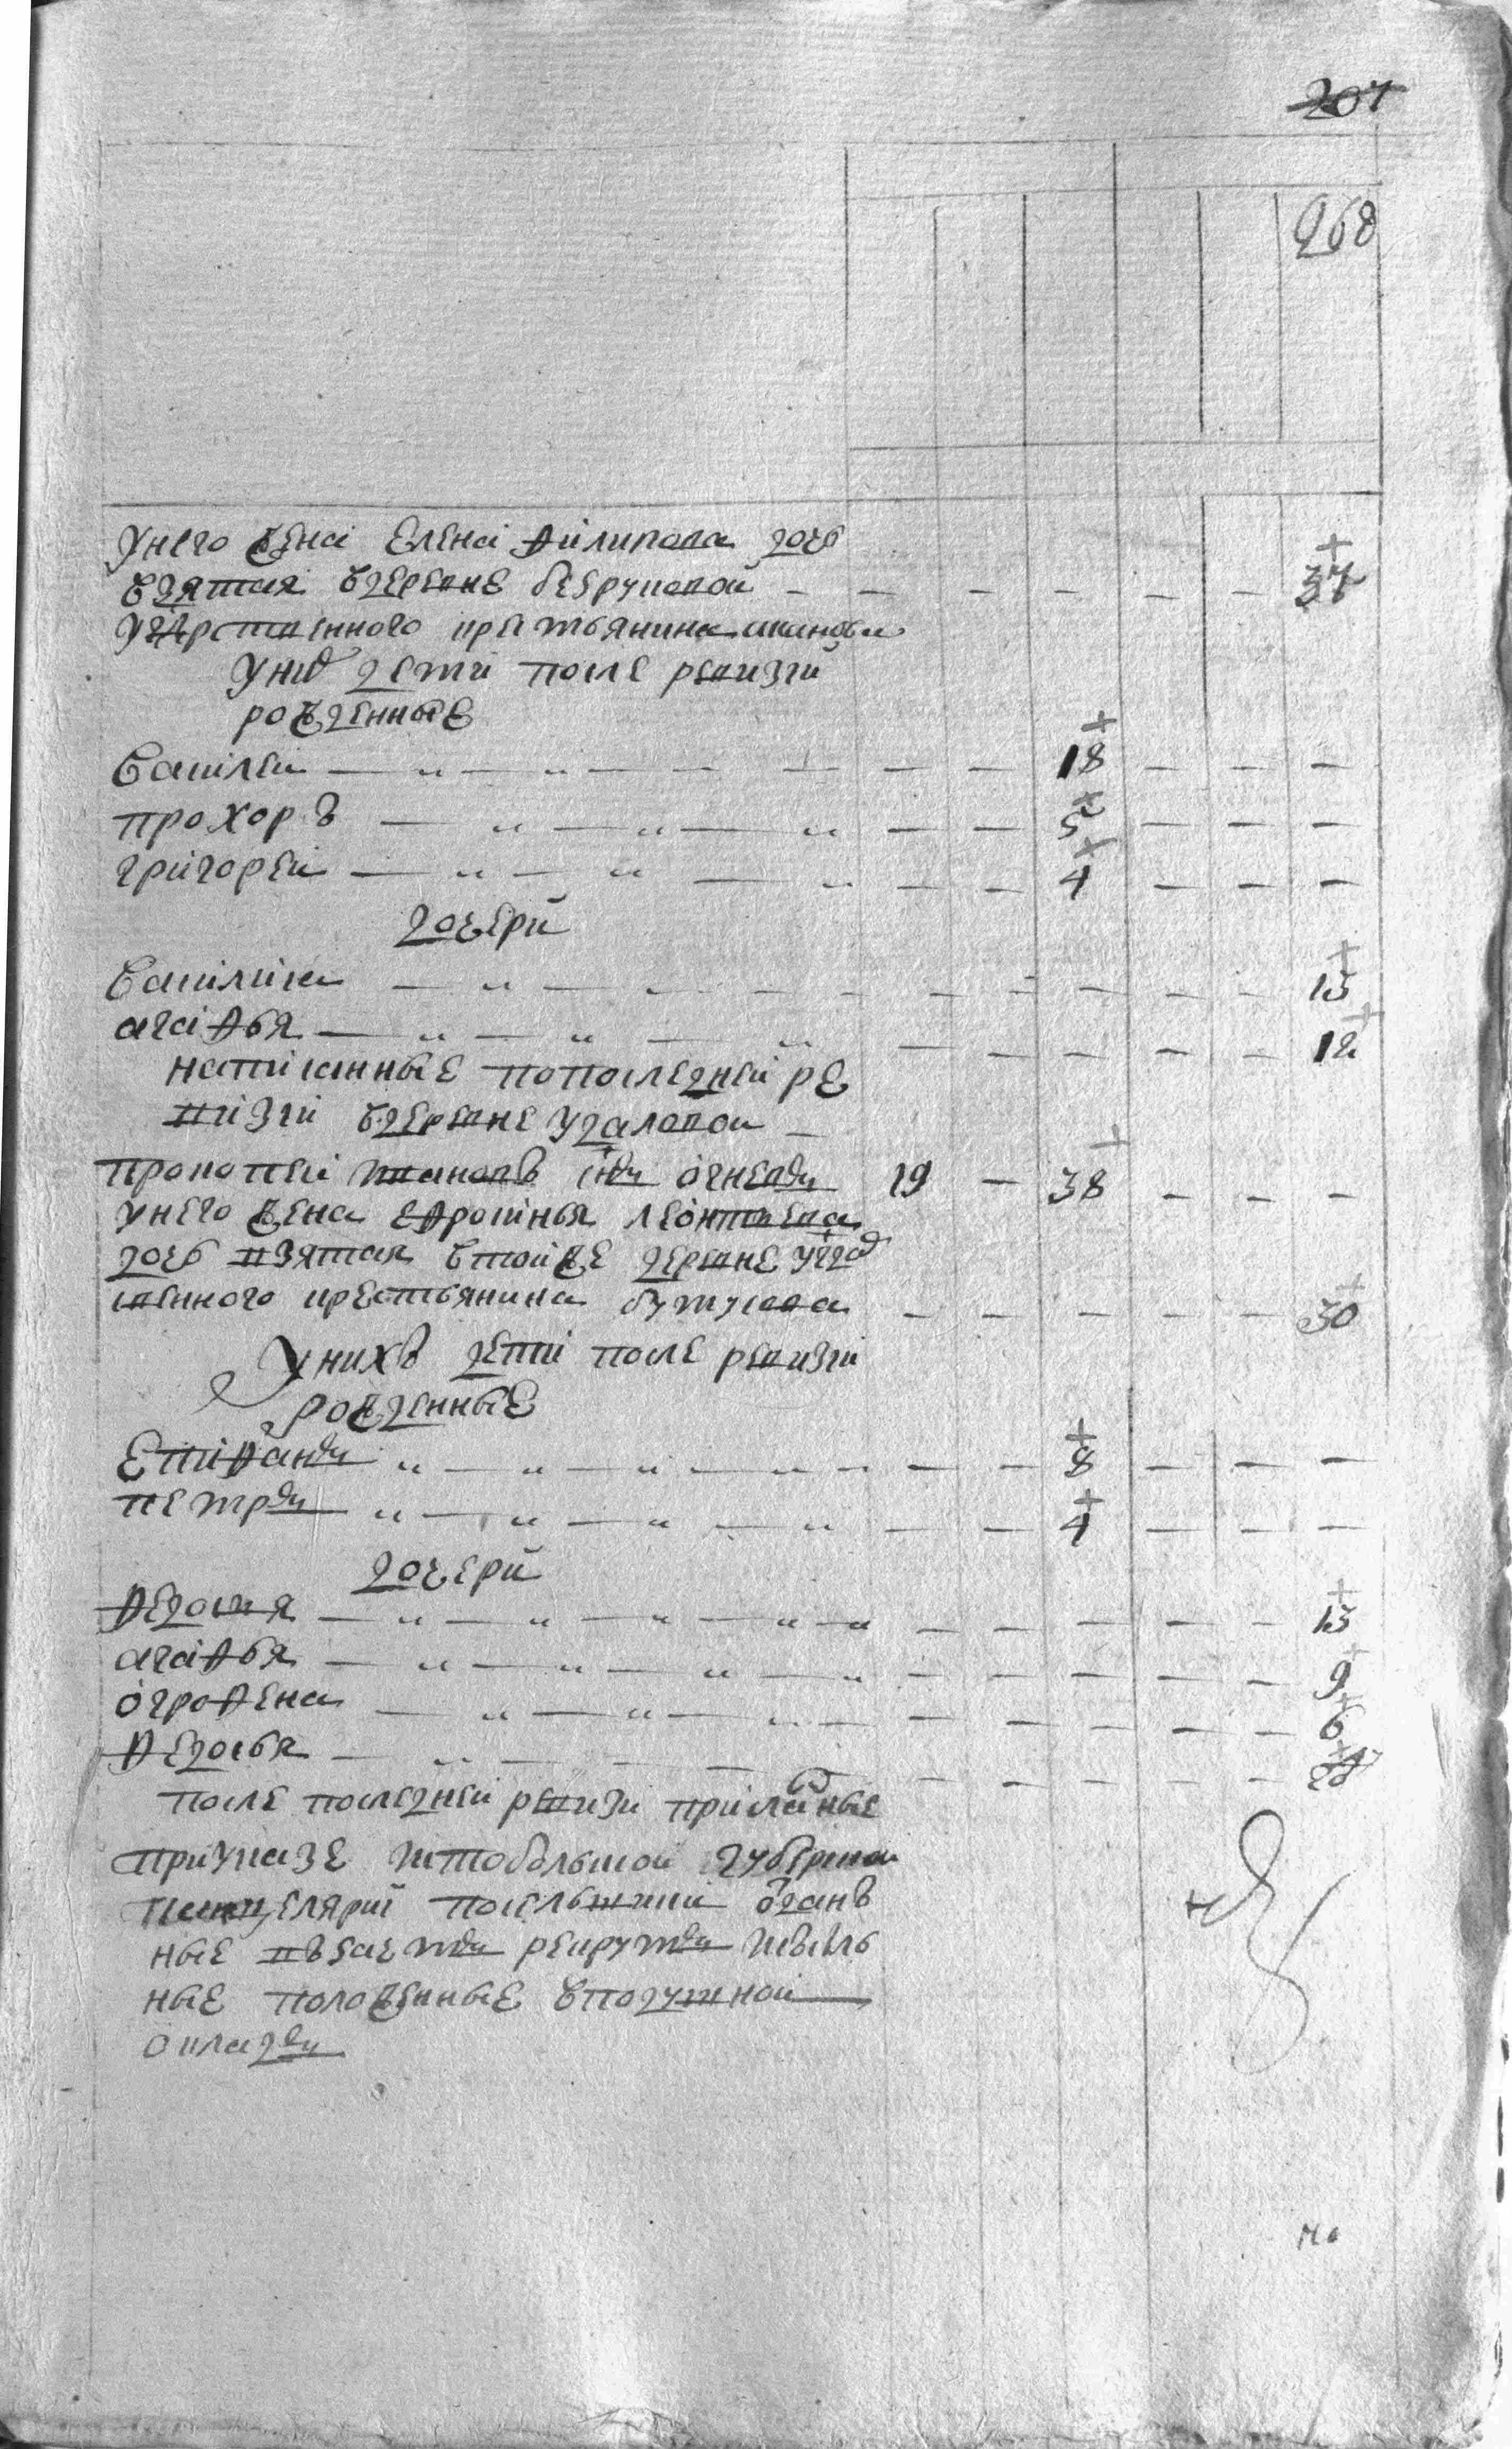 207
268
Унего жена Елена Филипова дочь
взятая вдеревне безруковой — — — — — — 37
угдрственного крестьянина
Уних дети после ревизии
рожденные
Василей — 18 — — —
прохоръ — 5 — — —
григорей — 4 — — —
дочери
Василиса — 15
агафья — 12
написанные попоследней ре
визии вдеревне удаловой —
Прокопей Ивановъ снъ огневъ 19 — 38 — — —
унего жена ефросинья леонтьева
дочь взятая втойже деревне угсод
ственного крестьянина бутусова — 30
Унихъ дети после ревизии
рожденные
Епифанъ — 8 — — —
петръ — 4 — — —
дочери
Федосия — 13
агафья — 9
ографена — 6
Федосья —
после последней ревизи присланые
приуказе истобольской губернской
канцелярии посельшики оддан
ные взачетъ рекрутъ исыль
ные положенные вподушной
окладъ